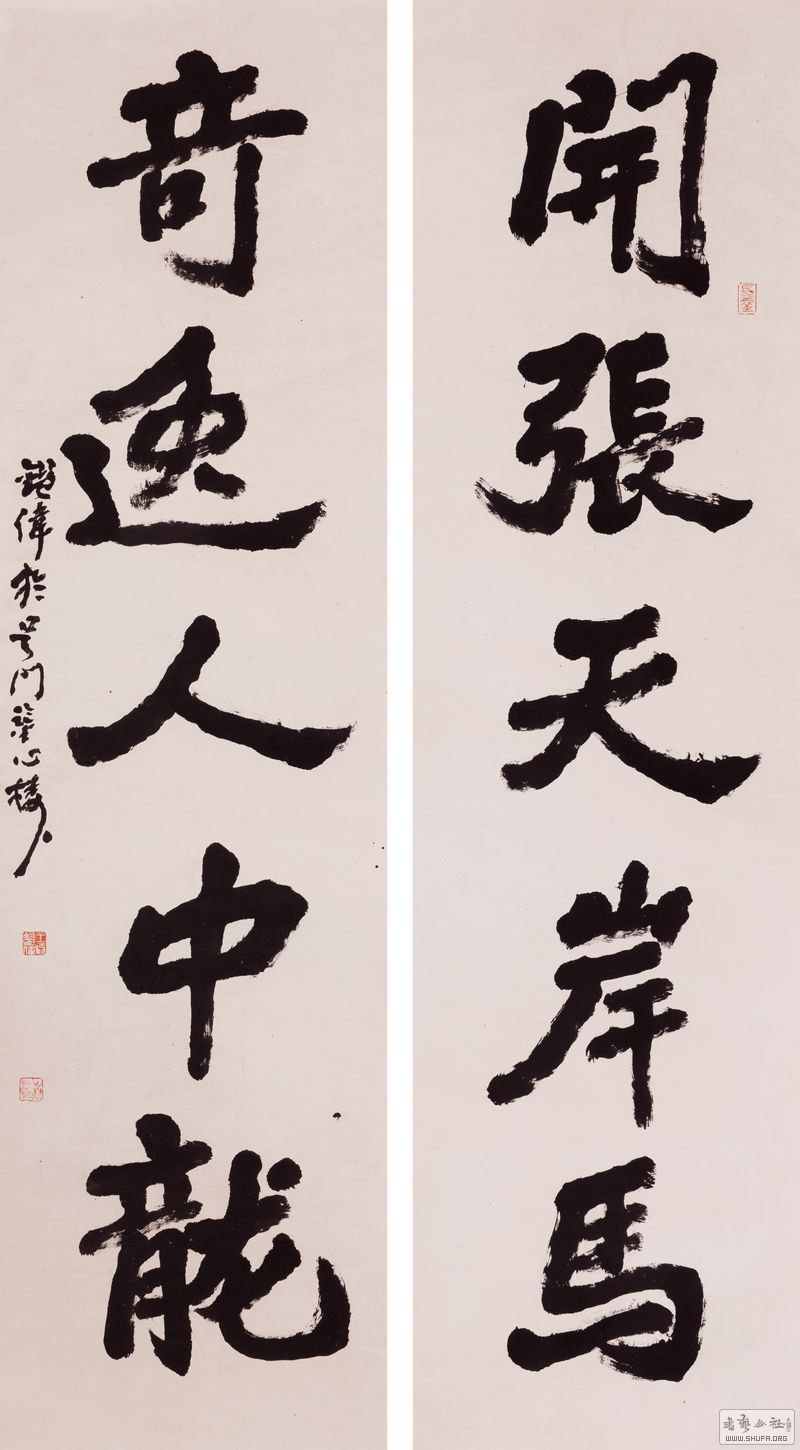 開張天岸馬
奇逸人中龍
偉於吴門
心樓
書藝公社
WWW.SHUFA.ORG